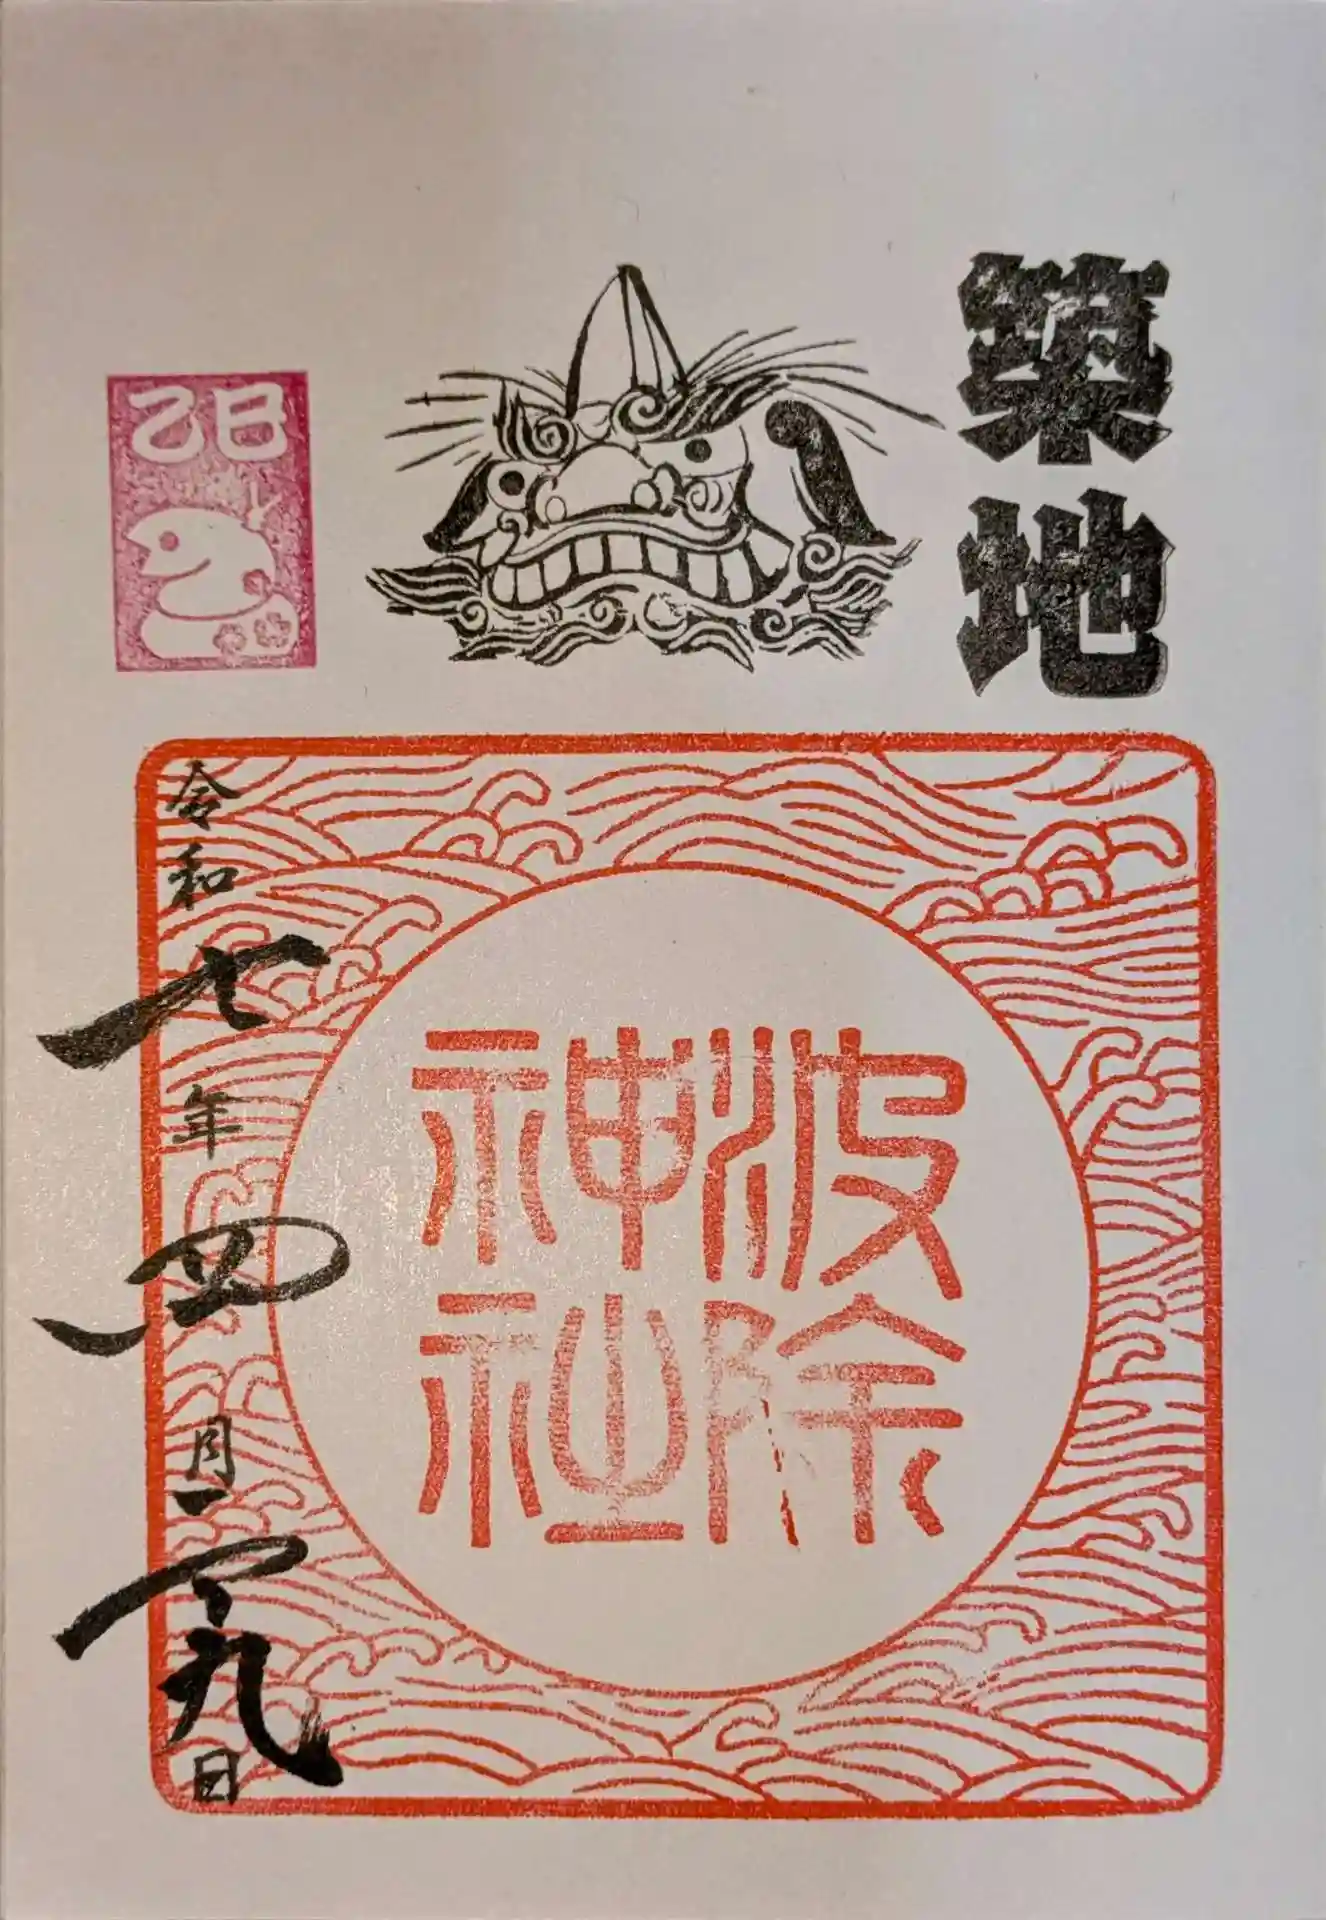 築地
乙巳
波除
神社
令和七年四月二十九日